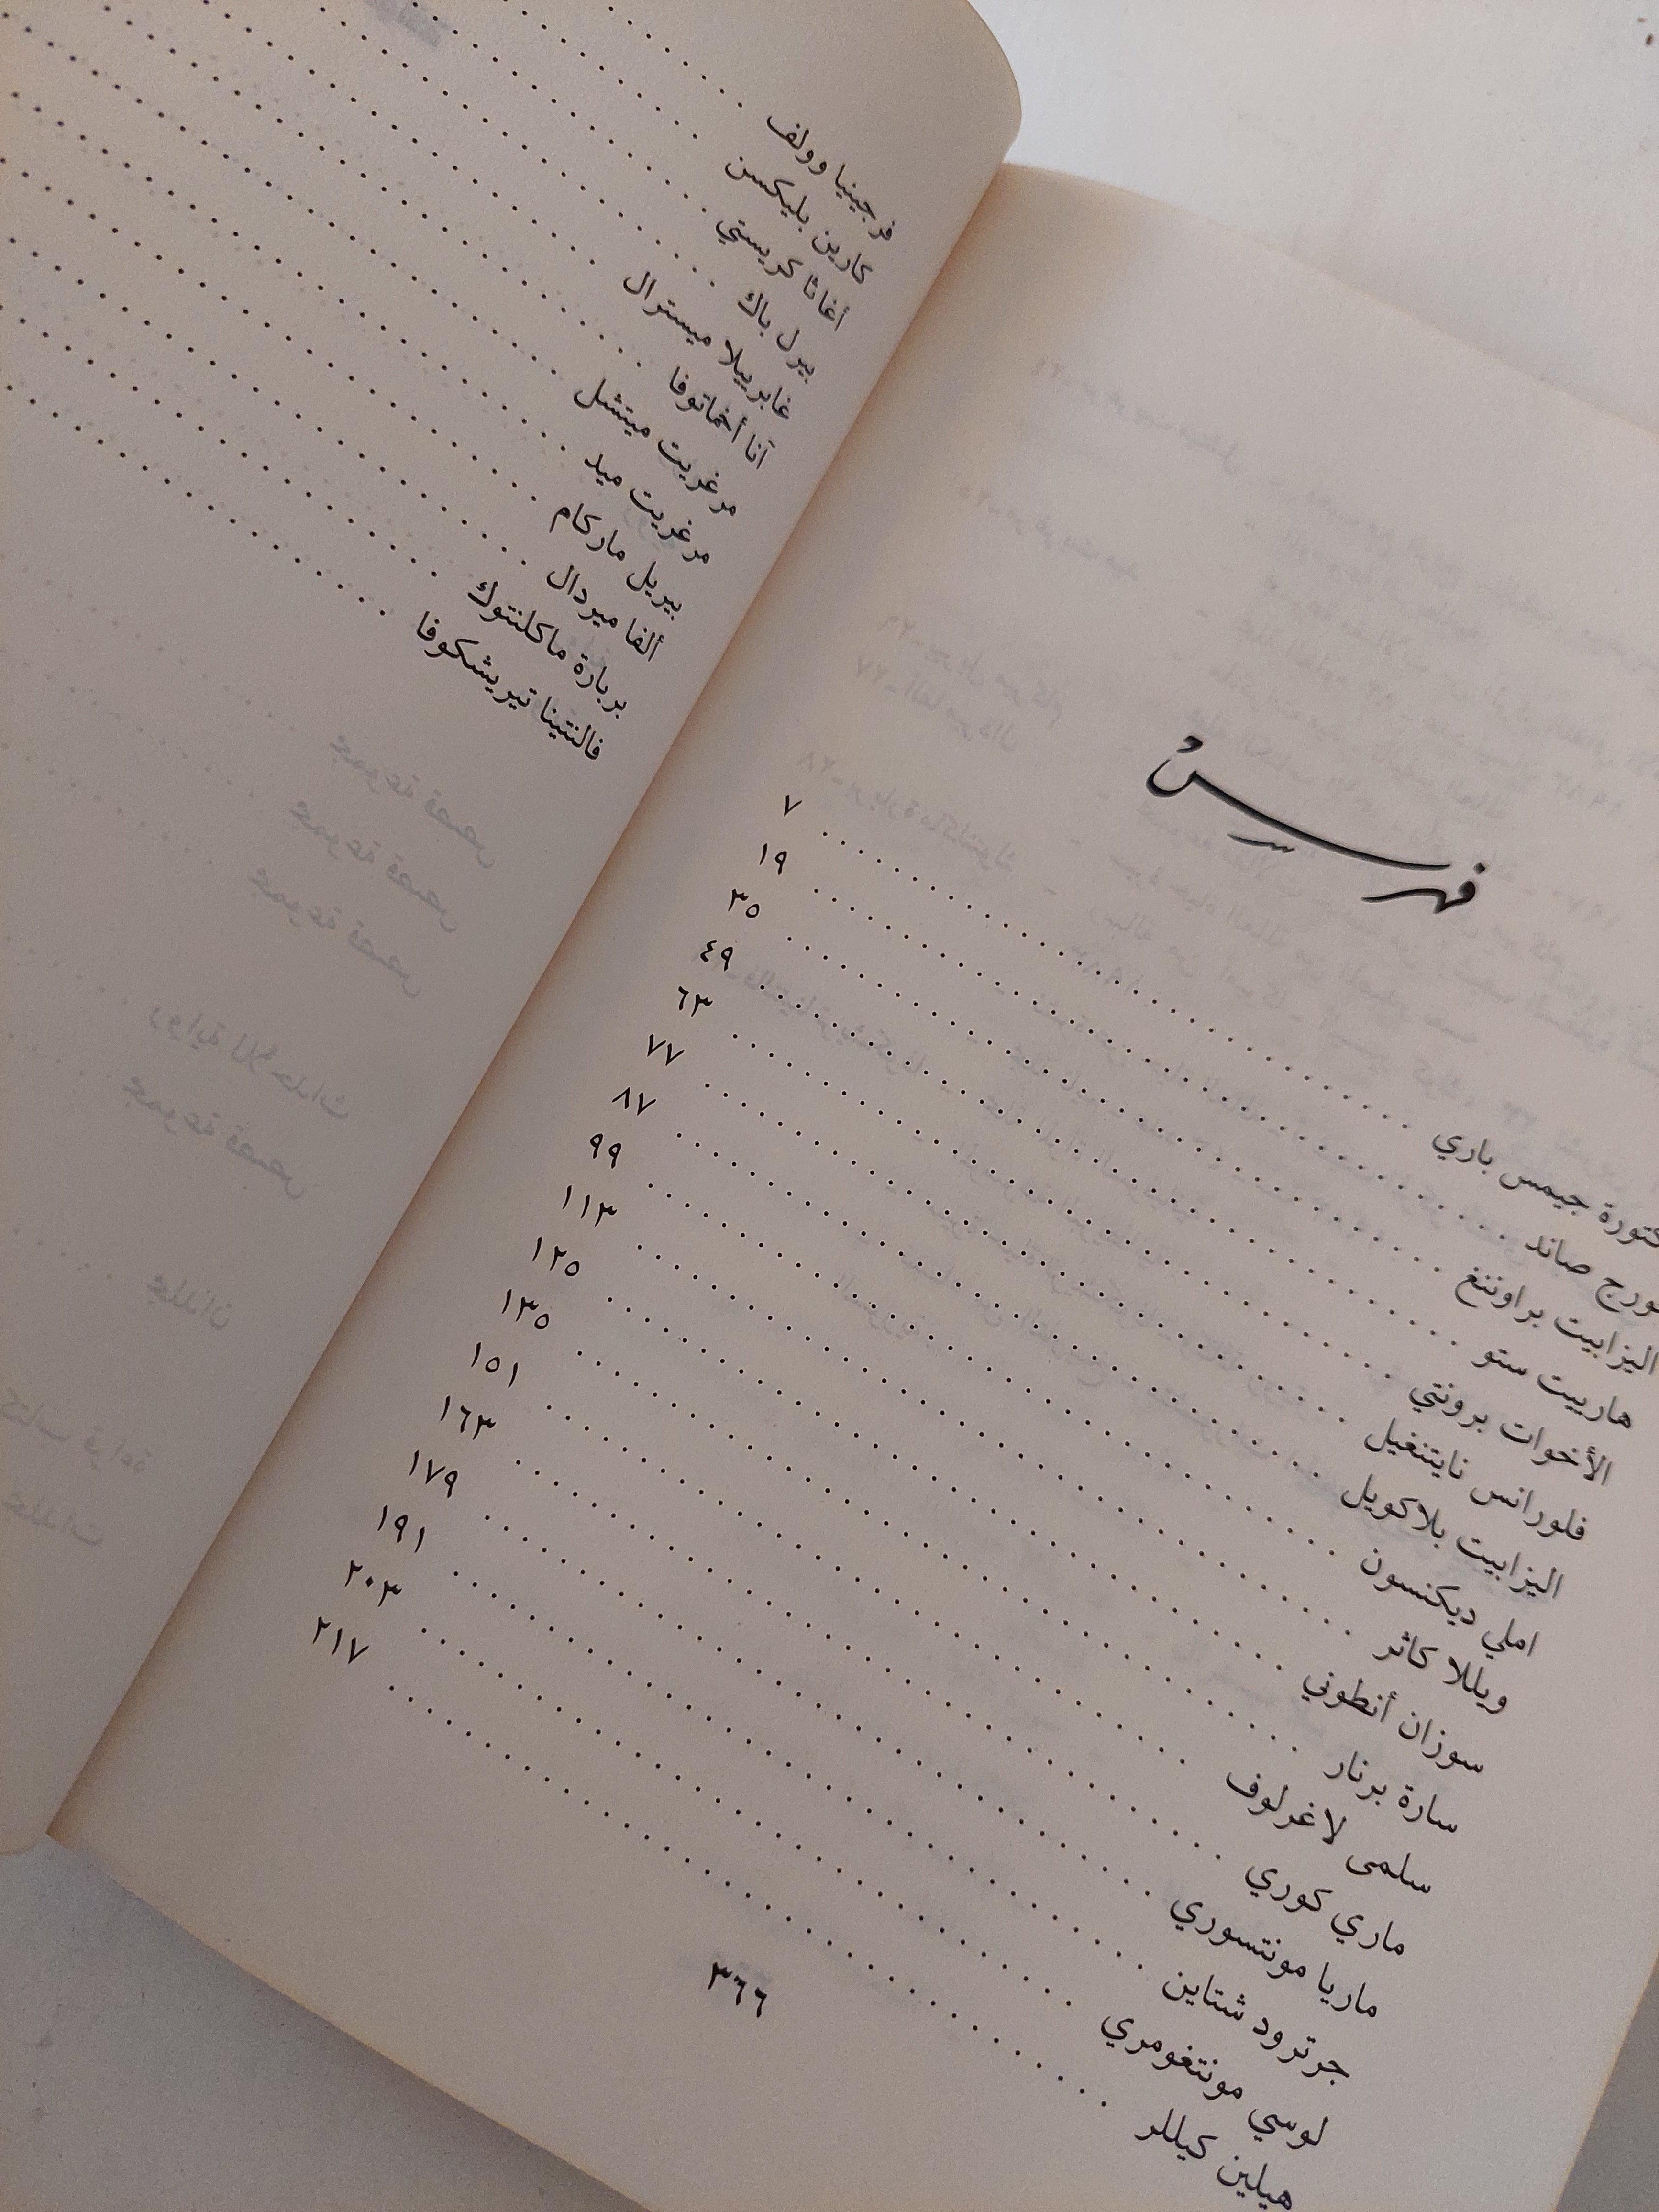 فهرس
كتورة جيمس باري ........ ٧
ورج صاند ........ ١٩
اليزابيت براوننغ ........ ٣٥
هارييت ستو ........ ٤٩
الأخوات برونتي ........ ٦٣
فلورانس نايتنغيل ........ ٧٧
اليزابيت بلاكويل ........ ٨٧
املي ديكنسون ........ ٩٩
ويللا كاثر ........ ١١٣
سوزان أنطوني ........ ١٢٥
سارة برنار ........ ١٣٥
سلمى لاغرلوف ........ ١٥١
ماري كوري ........ ١٦٣
ماريا مونتسوري ........ ١٧٩
جرترود شتاين ........ ١٩١
لوسي مونتغومري ........ ٢٠٣
هيلين كيللر ........ ٢١٧
٣٦٦
فرجينيا وولف ........
كارين بليكسن ........
أغاثا كريستي ........
بيرل باك ........
غابرييلا ميسترال ........
آنا أخماتوفا ........
مرغريت ميتشل ........
مرغريت ميد ........
بيريل ماركام ........
ألفا ميردال ........
بربارة ماكلنتوك ........
فالنتينا تيريشكوفا ........